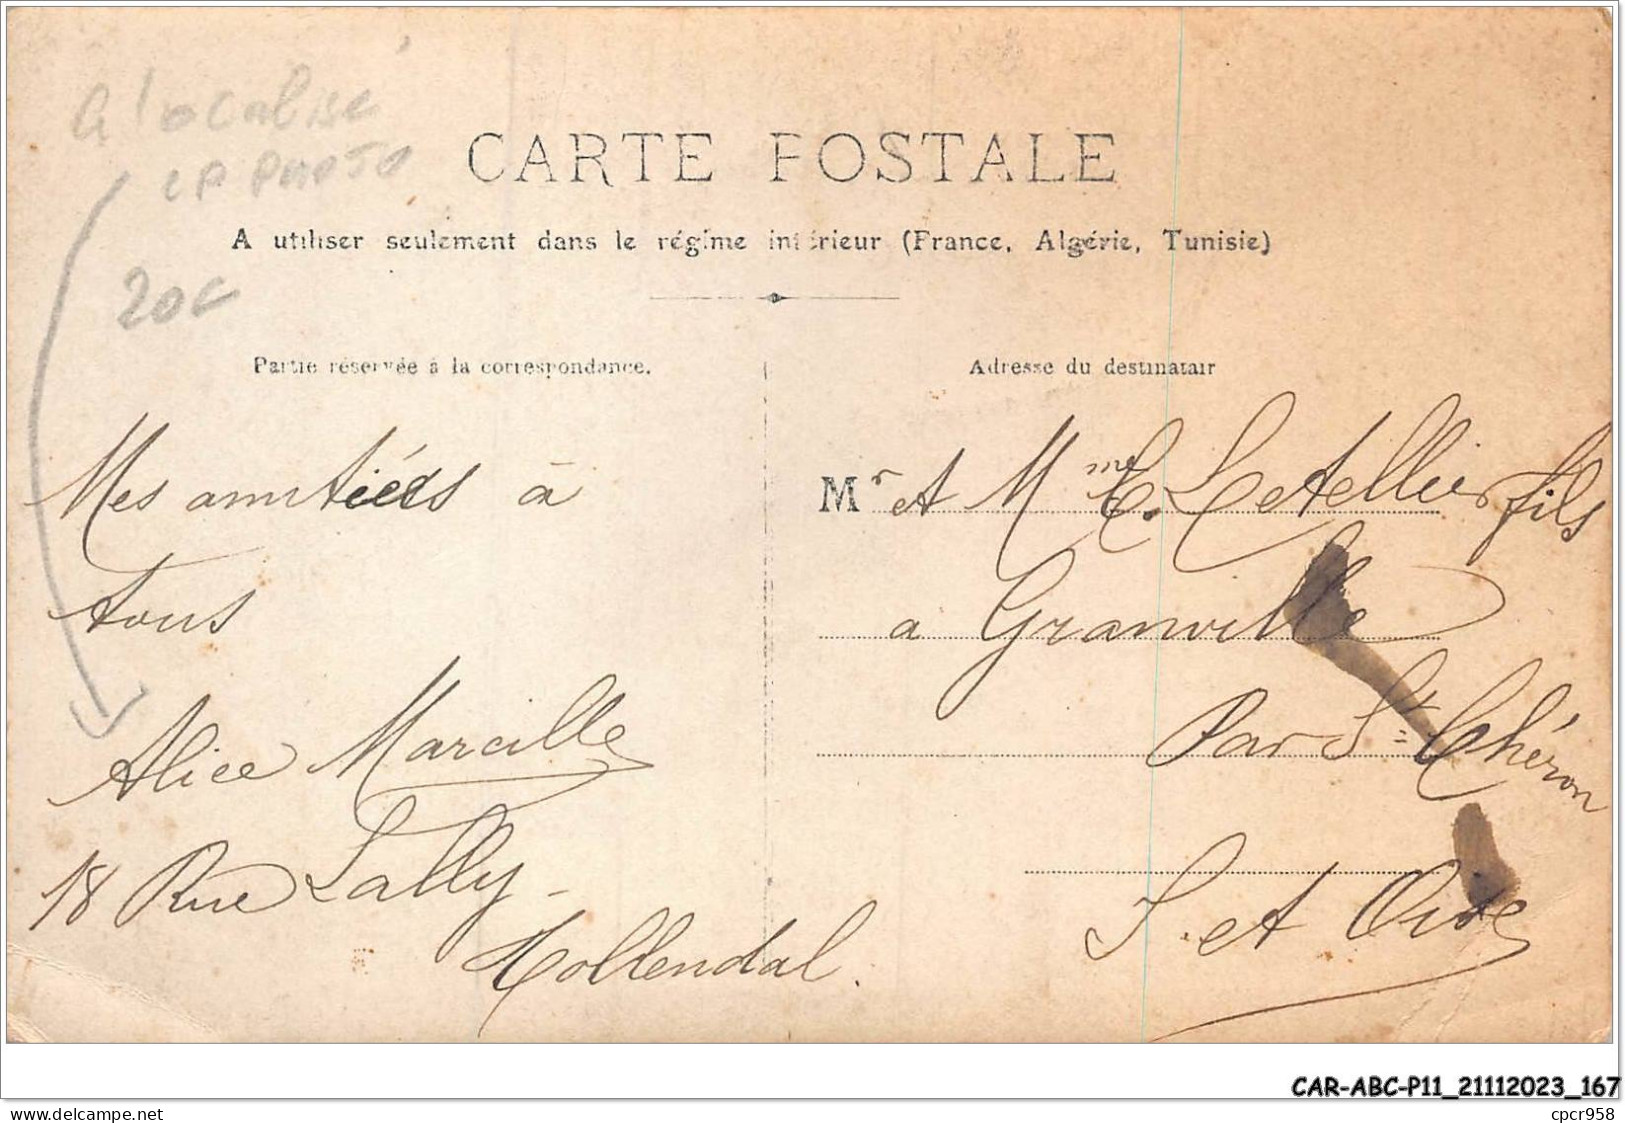 a localisé
LA PHOTO
20€
CARTE POSTALE
A utiliser seulement dans le régime intérieur (France, Algérie, Tunisie)
Partie réservée à la correspondance.
Mes amitiés à
tous
Alice Marcille
18 Rue Lally-
Tollendal.
Adresse du destinatair
Mr et Mme E. Letellier fils
a Granville
Par St Chéron
S. et Oise
CAR-ABC-P11_21112023_167
cpcr958